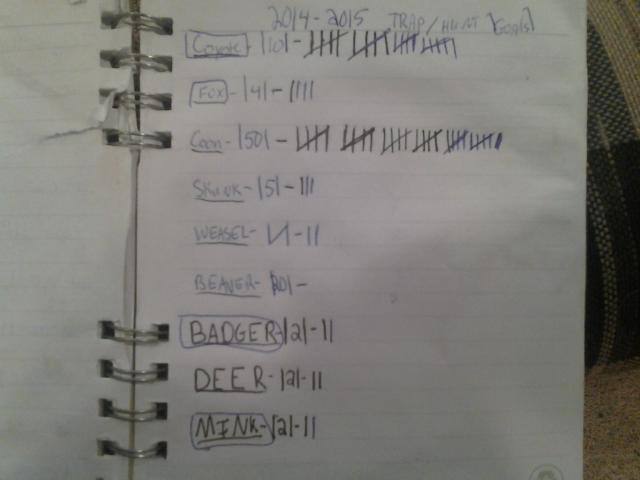 2014-2015 TRAP/HUNT [Goals]
Coyote |10|-
Fox - |4| - ||||
Coon - |50| -
SKUNK - |5| - |||
WEASEL - - ||
BEAVER - |20| -
BADGER |2| - ||
DEER - |2| - ||
MINK - |2| - ||